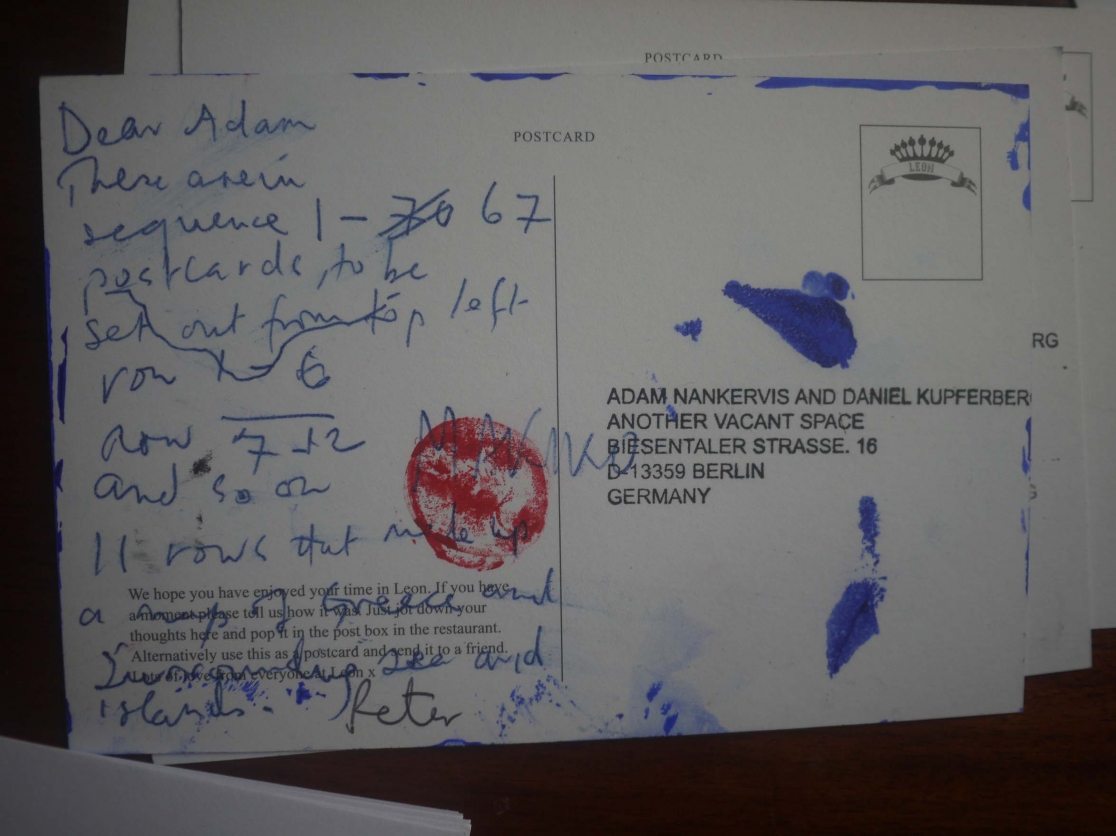 POSTCARD
POSTCARD
LEON
Dear Adam
These are in
sequence 1 - 70 67
postcards, to be
set out from top left
row 1 - 6
row 7 - 12
and so on
11 rows that made up
a map of Greece and
Surrounding see and
islands. Peter
We hope you have enjoyed your time in Leon. If you have
a moment please tell us how it was. Just jot down your
thoughts here and pop it in the post box in the restaurant.
Alternatively use this as a postcard and send it to a friend.
Lots of love from everyone at Leon x
ADAM NANKERVIS AND DANIEL KUPFERBER
ANOTHER VACANT SPACE
BIESENTALER STRASSE. 16
D-13359 BERLIN
GERMANY
RG